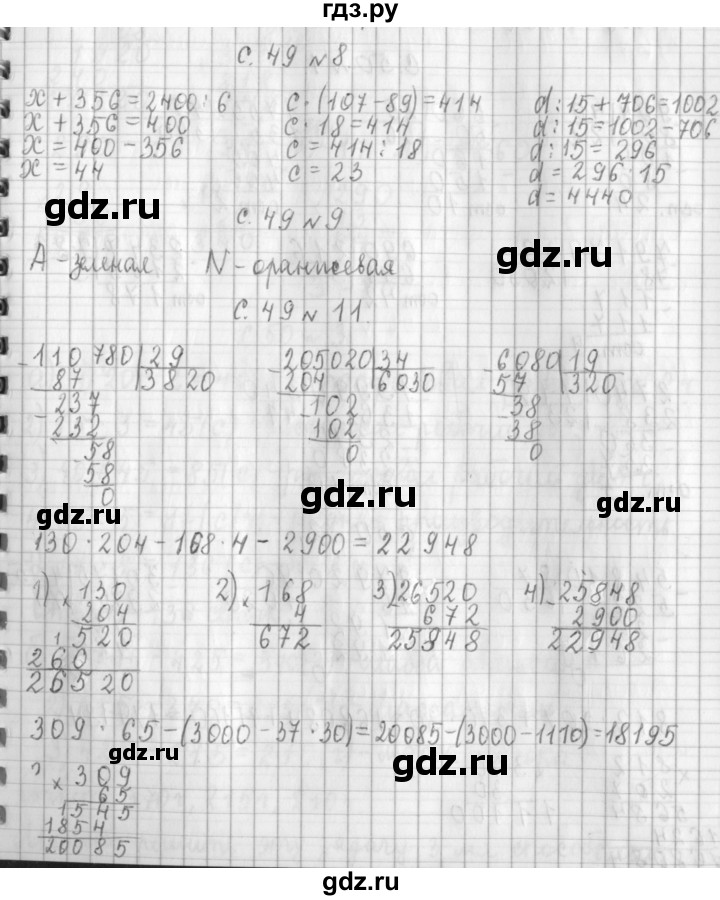 гдз.ру
с. 49 №8
x + 356 = 2400 : 6
x + 356 = 400
x = 400 - 356
x = 44
c · (107 - 89) = 414
c · 18 = 414
c = 414 : 18
c = 23
d : 15 + 706 = 1002
d : 15 = 1002 - 706
d : 15 = 296
d = 296 · 15
d = 4440
gdz.ru
с. 49 №9
gdz.ru
А - зеленая N - оранжевая
с. 49 № 11.
- 110780 | 29
87 | 3820
- 237
232
- 58
58
0
- 205020 | 34
204 | 6030
- 102
102
0
- 6080 | 19
57 | 320
- 38
38
0
gdz.ru
gdz.ru
gdz.ru
130 · 204 - 168 · 4 - 2900 = 22948
1) × 130
204
520
260
26520
2) × 168
4
672
3) - 26520
672
25848
4) - 25848
2900
22948
309 · 65 - (3000 - 37 · 30) = 20085 - (3000 - 1110) = 18195
gdz.ru
gdz.ru
× 309
65
1545
1854
20085
gdz.ru